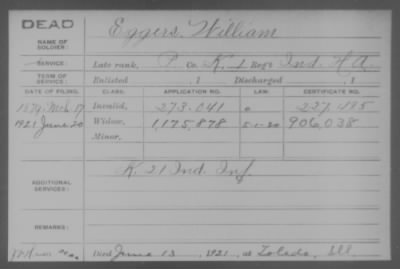 DEAD
NAME OF SOLDIER: Eggers, William
SERVICE: Late rank, P Co. K, 1 Reg't Ind. H.A.
TERM OF SERVICE: Enlisted , 1 Discharged , 1
DATE OF FILING. CLASS. APPLICATION NO. LAW. CERTIFICATE NO.
1879, Mch. 17 Invalid, 273.041
1921, June 20 Widow, 1,175,878 5-1-20 906,038
Minor,
ADDITIONAL SERVICES: K. 21 Ind. Inf.
REMARKS:
Died June 13, 1921, at Toledo, Ill.